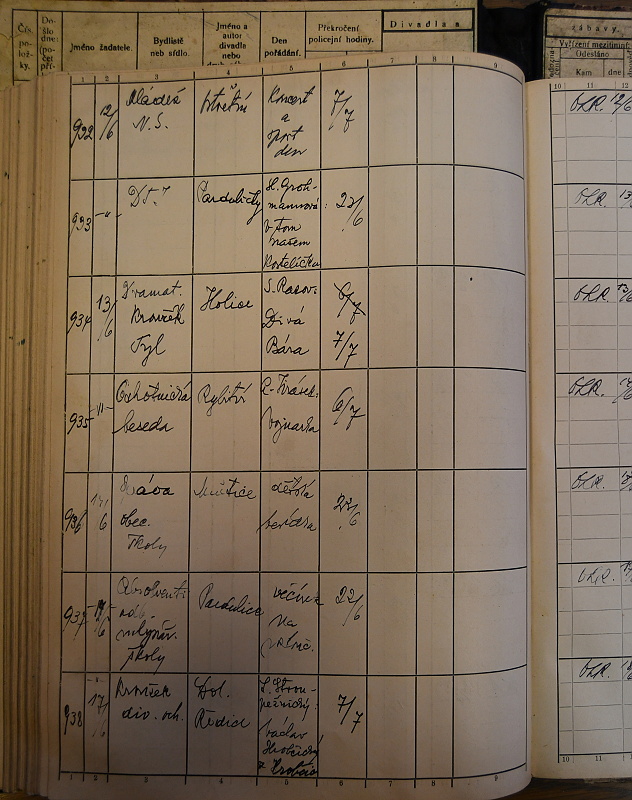 Čís. po- lož- ky.
Do- šlo dne:
Jméno žadatele.
Bydliště neb sídlo.
Jméno a autor divadla nebo
Den pořádání.
Překročení policejní hodiny.
Divadla a
zábavy.
Vyřízení mezitimní
Odesláno
Kam dne
1 2 3 4 5 6 7 8 9
10 11 12
932 12/6 Mládež Ostřetín Koncert 7/7 OLR. 12/6
N. S. a
sport
den
933 -"- DTJ Pardubičky H. Groh- 22/6 OLR. 13
mannová:
V tom
našem
kostelíčku
934 13/6 Dramat. Holice S. Rasov: 6/7 OLR. 13/6
Kroužek Divá 7/7
Tyl Bára
935 -"- Ochotnická Rybitví A. Jirásek: 6/7 OLR.
beseda Vojnarka
936 6 Správa dětská 22/6 OLR.
obec. besídka
školy
937 /6 Absolventi Pardubice večírek 22/6 OLR.
odb. na
mlynář.
školy
938 17/6 Kroužek Dol. L. Strou- 7/7 OLR.
div. och. Ředice pežnický:
Václav
Hrobčický
z Hrobčic
1 2 3 4 5 6 7 8 9
10 11 12